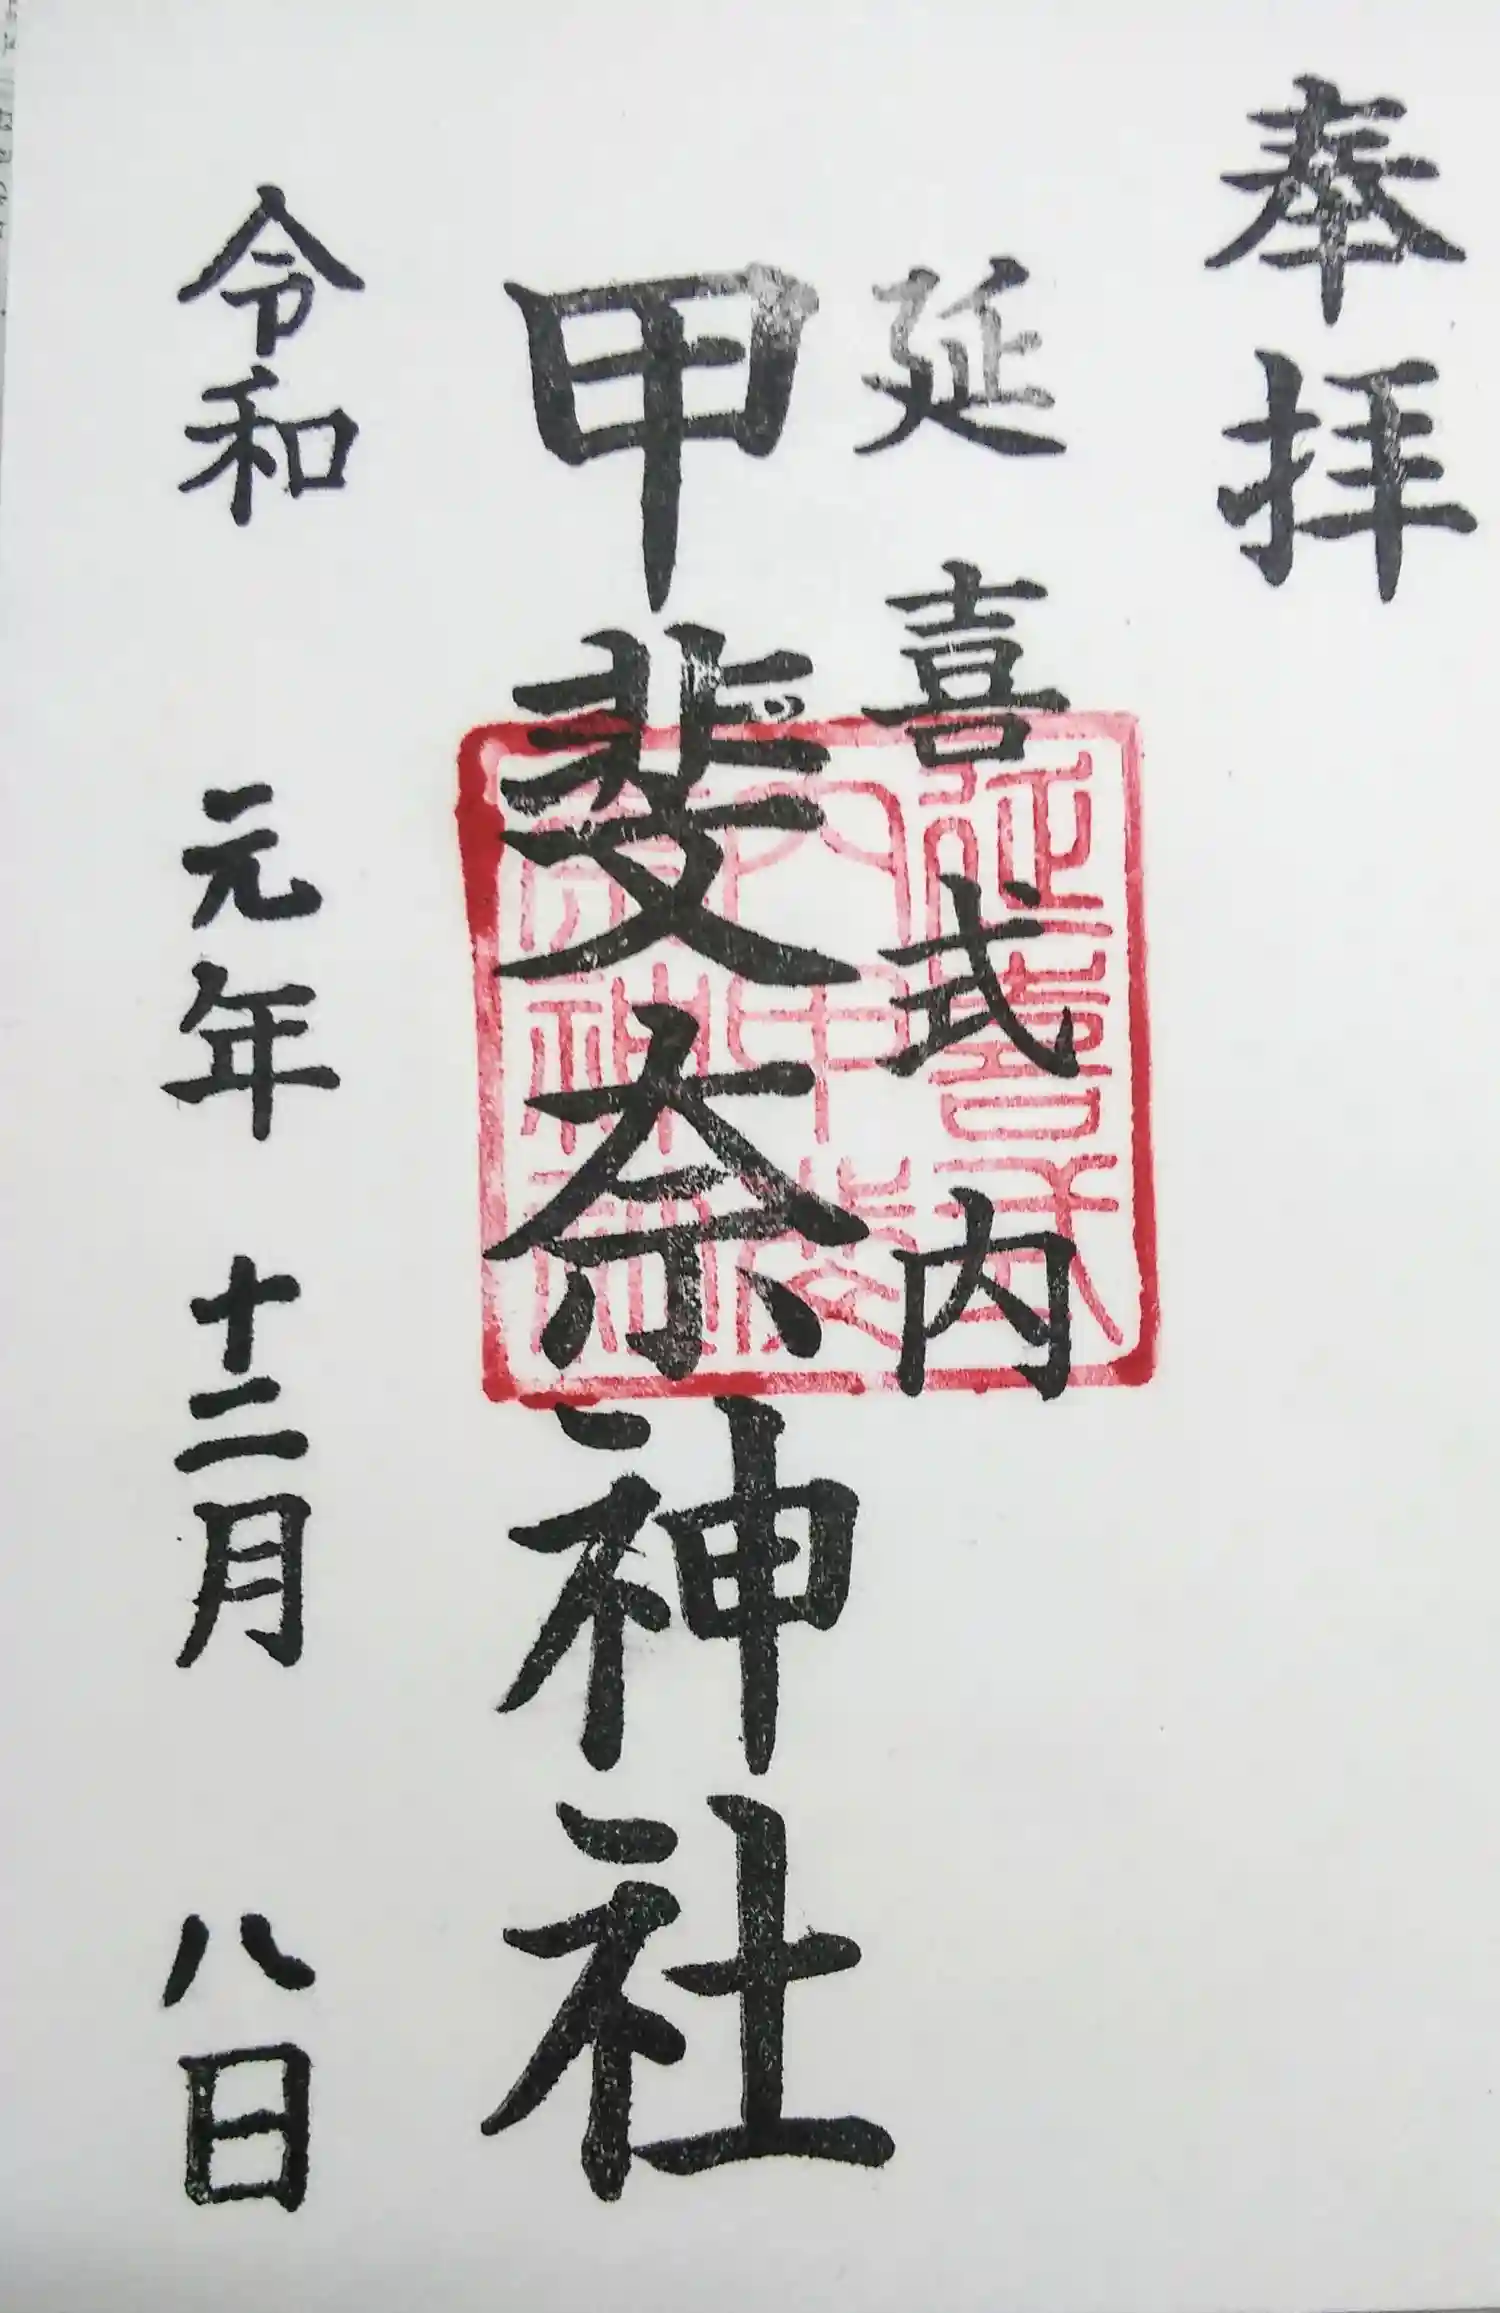 奉拝
延喜式内
甲斐奈神社
延喜式
内甲斐
奈神社
令和 元年 十二月 八日